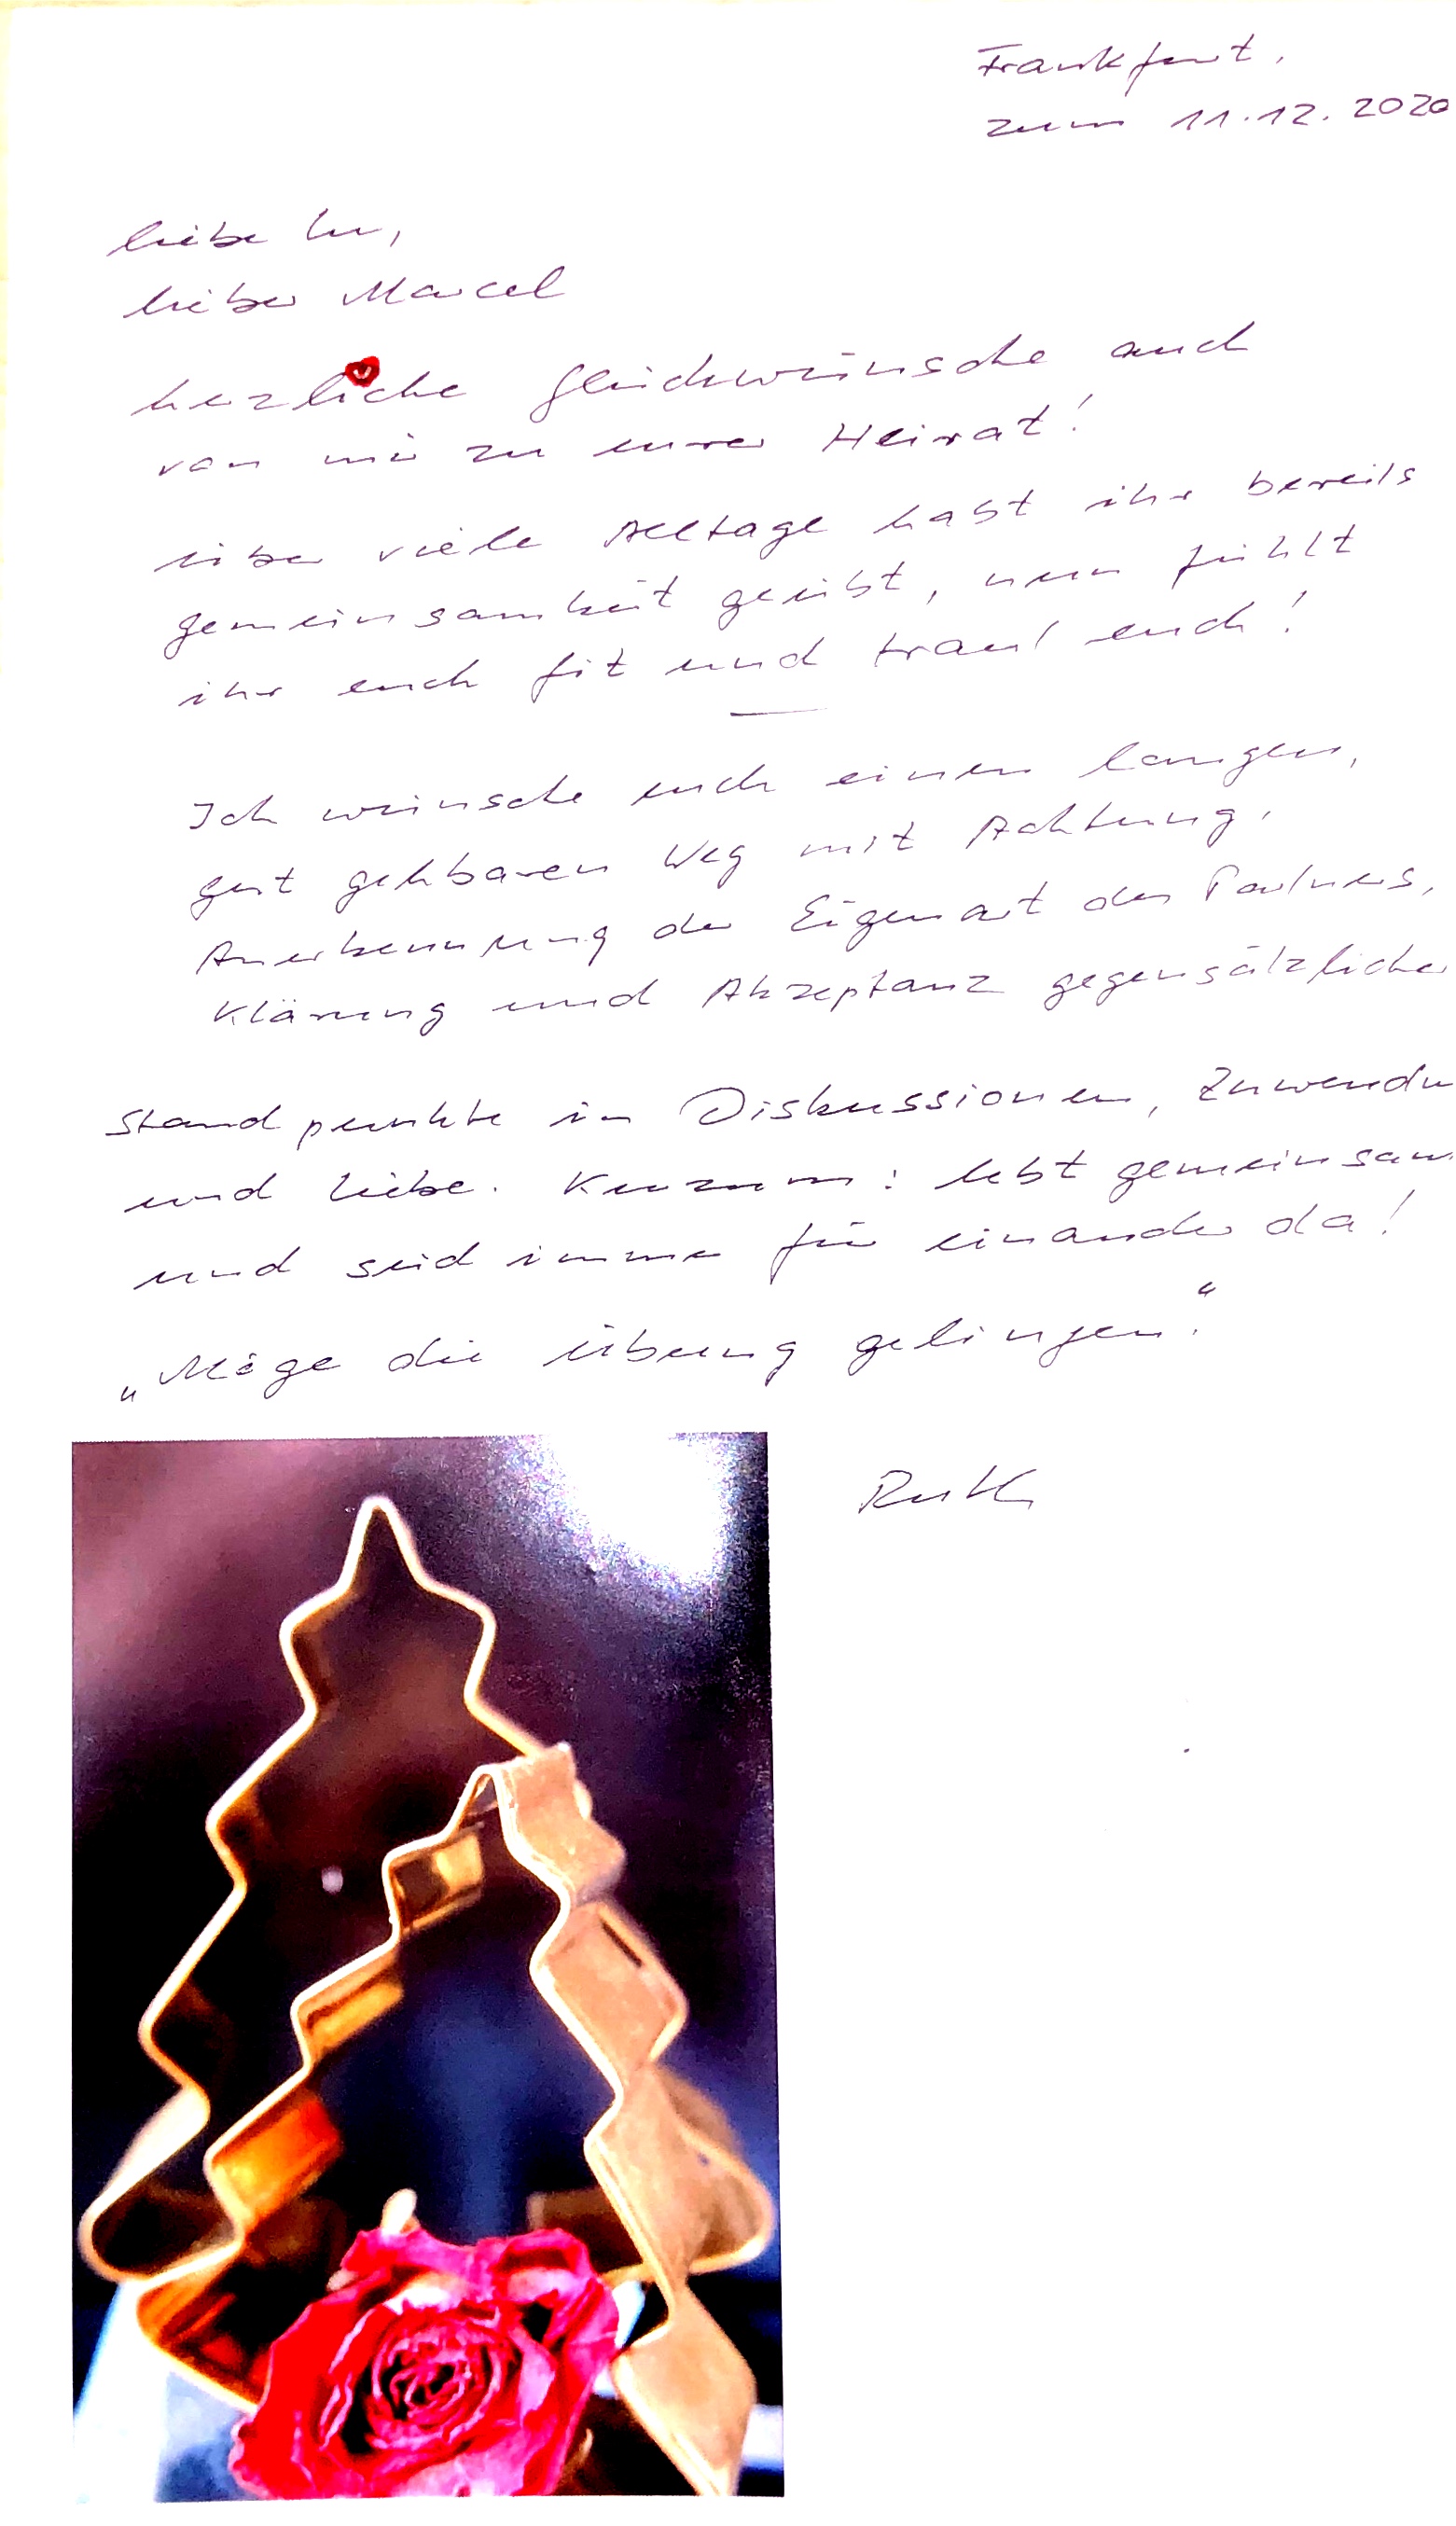 Frankfurt,
zum 11.12.2020
liebe Lu,
lieber Marcel
herzliche Glückwünsche auch
von mir zu eurer Heirat!
über viele Alltage habt ihr bereits
gemeinsamkeit geübt, nun fühlt
ihr euch fit und traut euch!
Ich wünsche euch einen langen,
gut gehbaren Weg mit Achtung,
Anerkennung der Eigenart des Partners,
Klärung und Akzeptanz gegensätzlicher
Standpunkte in Diskussionen, Zuwendu
und Liebe. Kurzum: lebt gemeinsam
und seid immer für einander da!
„Möge die Übung gelingen.“
Ruth